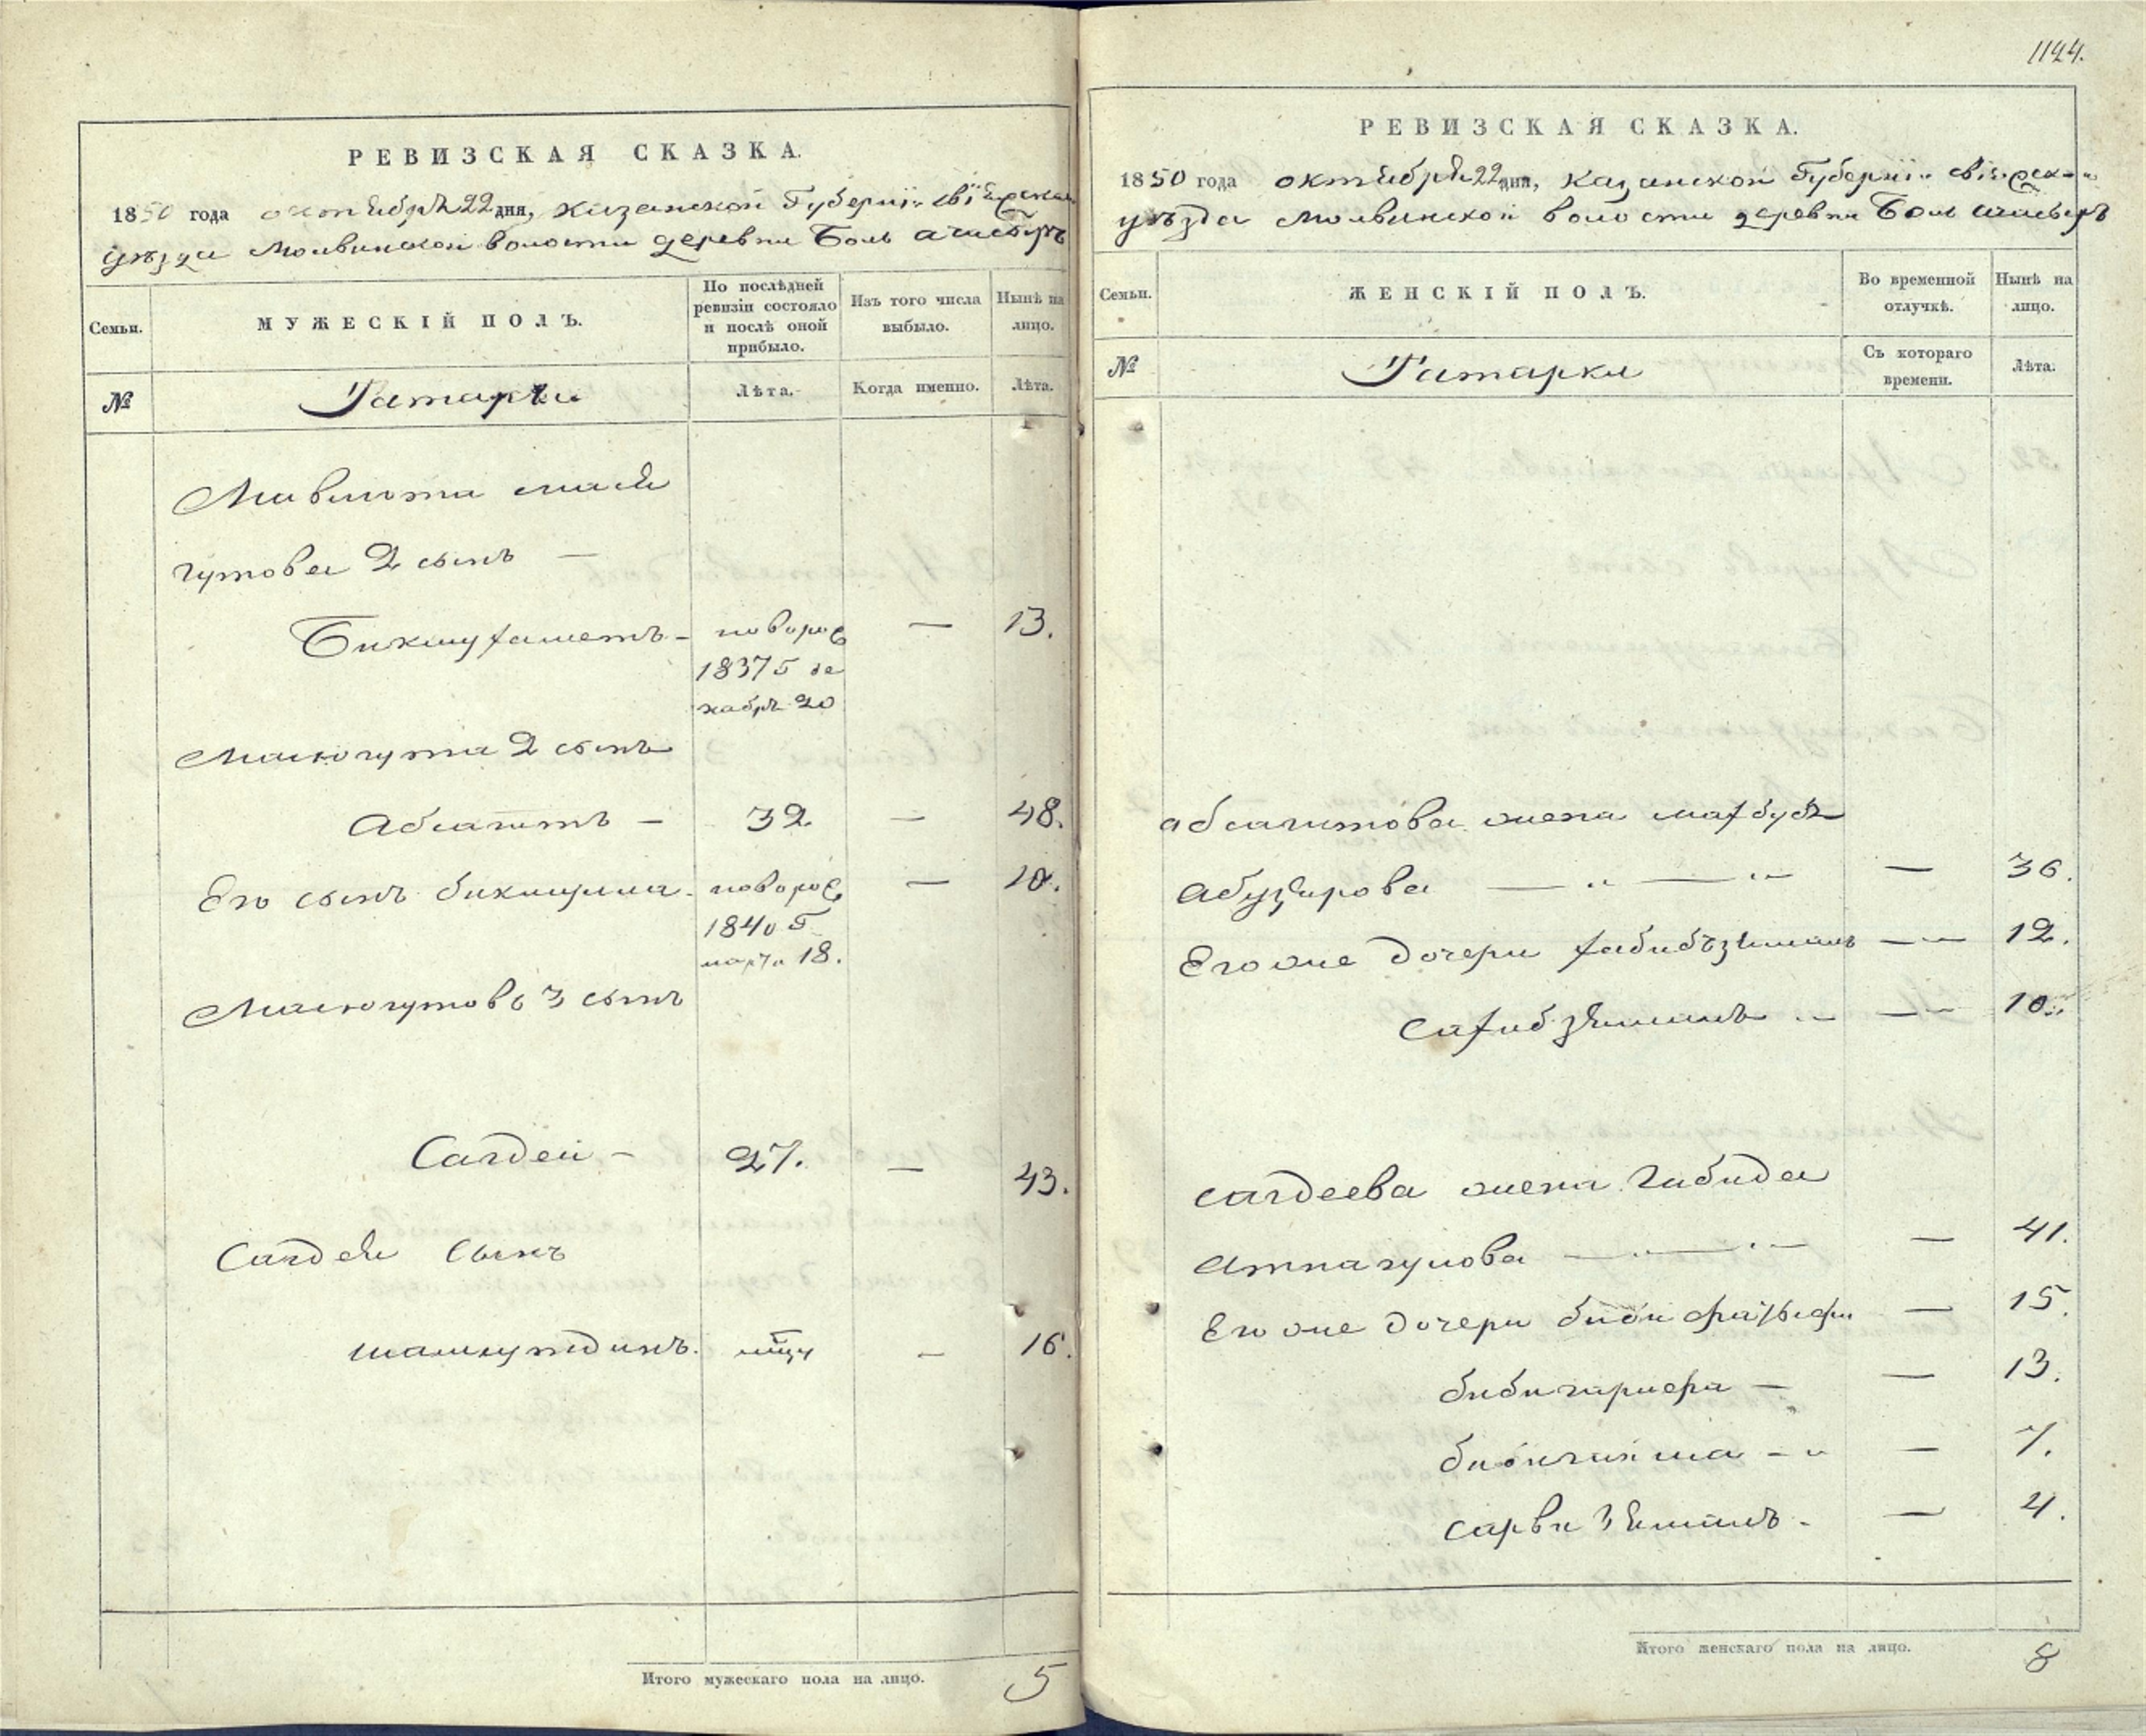 РЕВИЗСКАЯ СКАЗКА.
1850 года октября 22 дня, Казанской Губернiи Свiяжска
уѣзда Молвинской волости деревни Боль ачасырь
Семьи.
МУЖЕСКІЙ ПОЛЪ.
По послѣдней
ревизіи состояло
и послѣ оной
прибыло.
Изъ того числа
выбыло.
Нынѣ на
лицо.
№
Татары
Лѣта.
Когда именно.
Лѣта.
гутова 2 сынъ —
Бикмухаметъ - новорож — 13.
1837 г де
кабрь 20
Масягута 2 сынъ
Абсагитъ — 32. — 48.
Его сынъ бикмулла - новорож — 10.
1840 г
марта 18.
Масягутовъ 3 сынъ
Сагдеи — 27. — 43.
Сагдея Сынъ
шамсутдинъ. — 16.
Итого мужескаго пола на лицо. 5
1144.
РЕВИЗСКАЯ СКАЗКА.
1850 года октября 22 дня, Казанской Губернiи Свiяжск
уѣзда Молвинской волости деревни Боль ачасырь
Семьи.
ЖЕНСКІЙ ПОЛЪ.
Во временной
отлучкѣ.
Нынѣ на
лицо.
№
Татарки
Съ котораго
времени.
Лѣта.
абсагитова жена махбубъ
абузярова — „ — „ — — 36.
Его же дочери хабибъзямалъ — 12.
сахибзямалъ — 10.
сагдеева жена Габида
атнагулова — „ — „ — — 41.
Его же дочери биби — 15.
— 13.
— 7.
сарви зямалъ - — 4.
Итого женскаго пола на лицо. 8